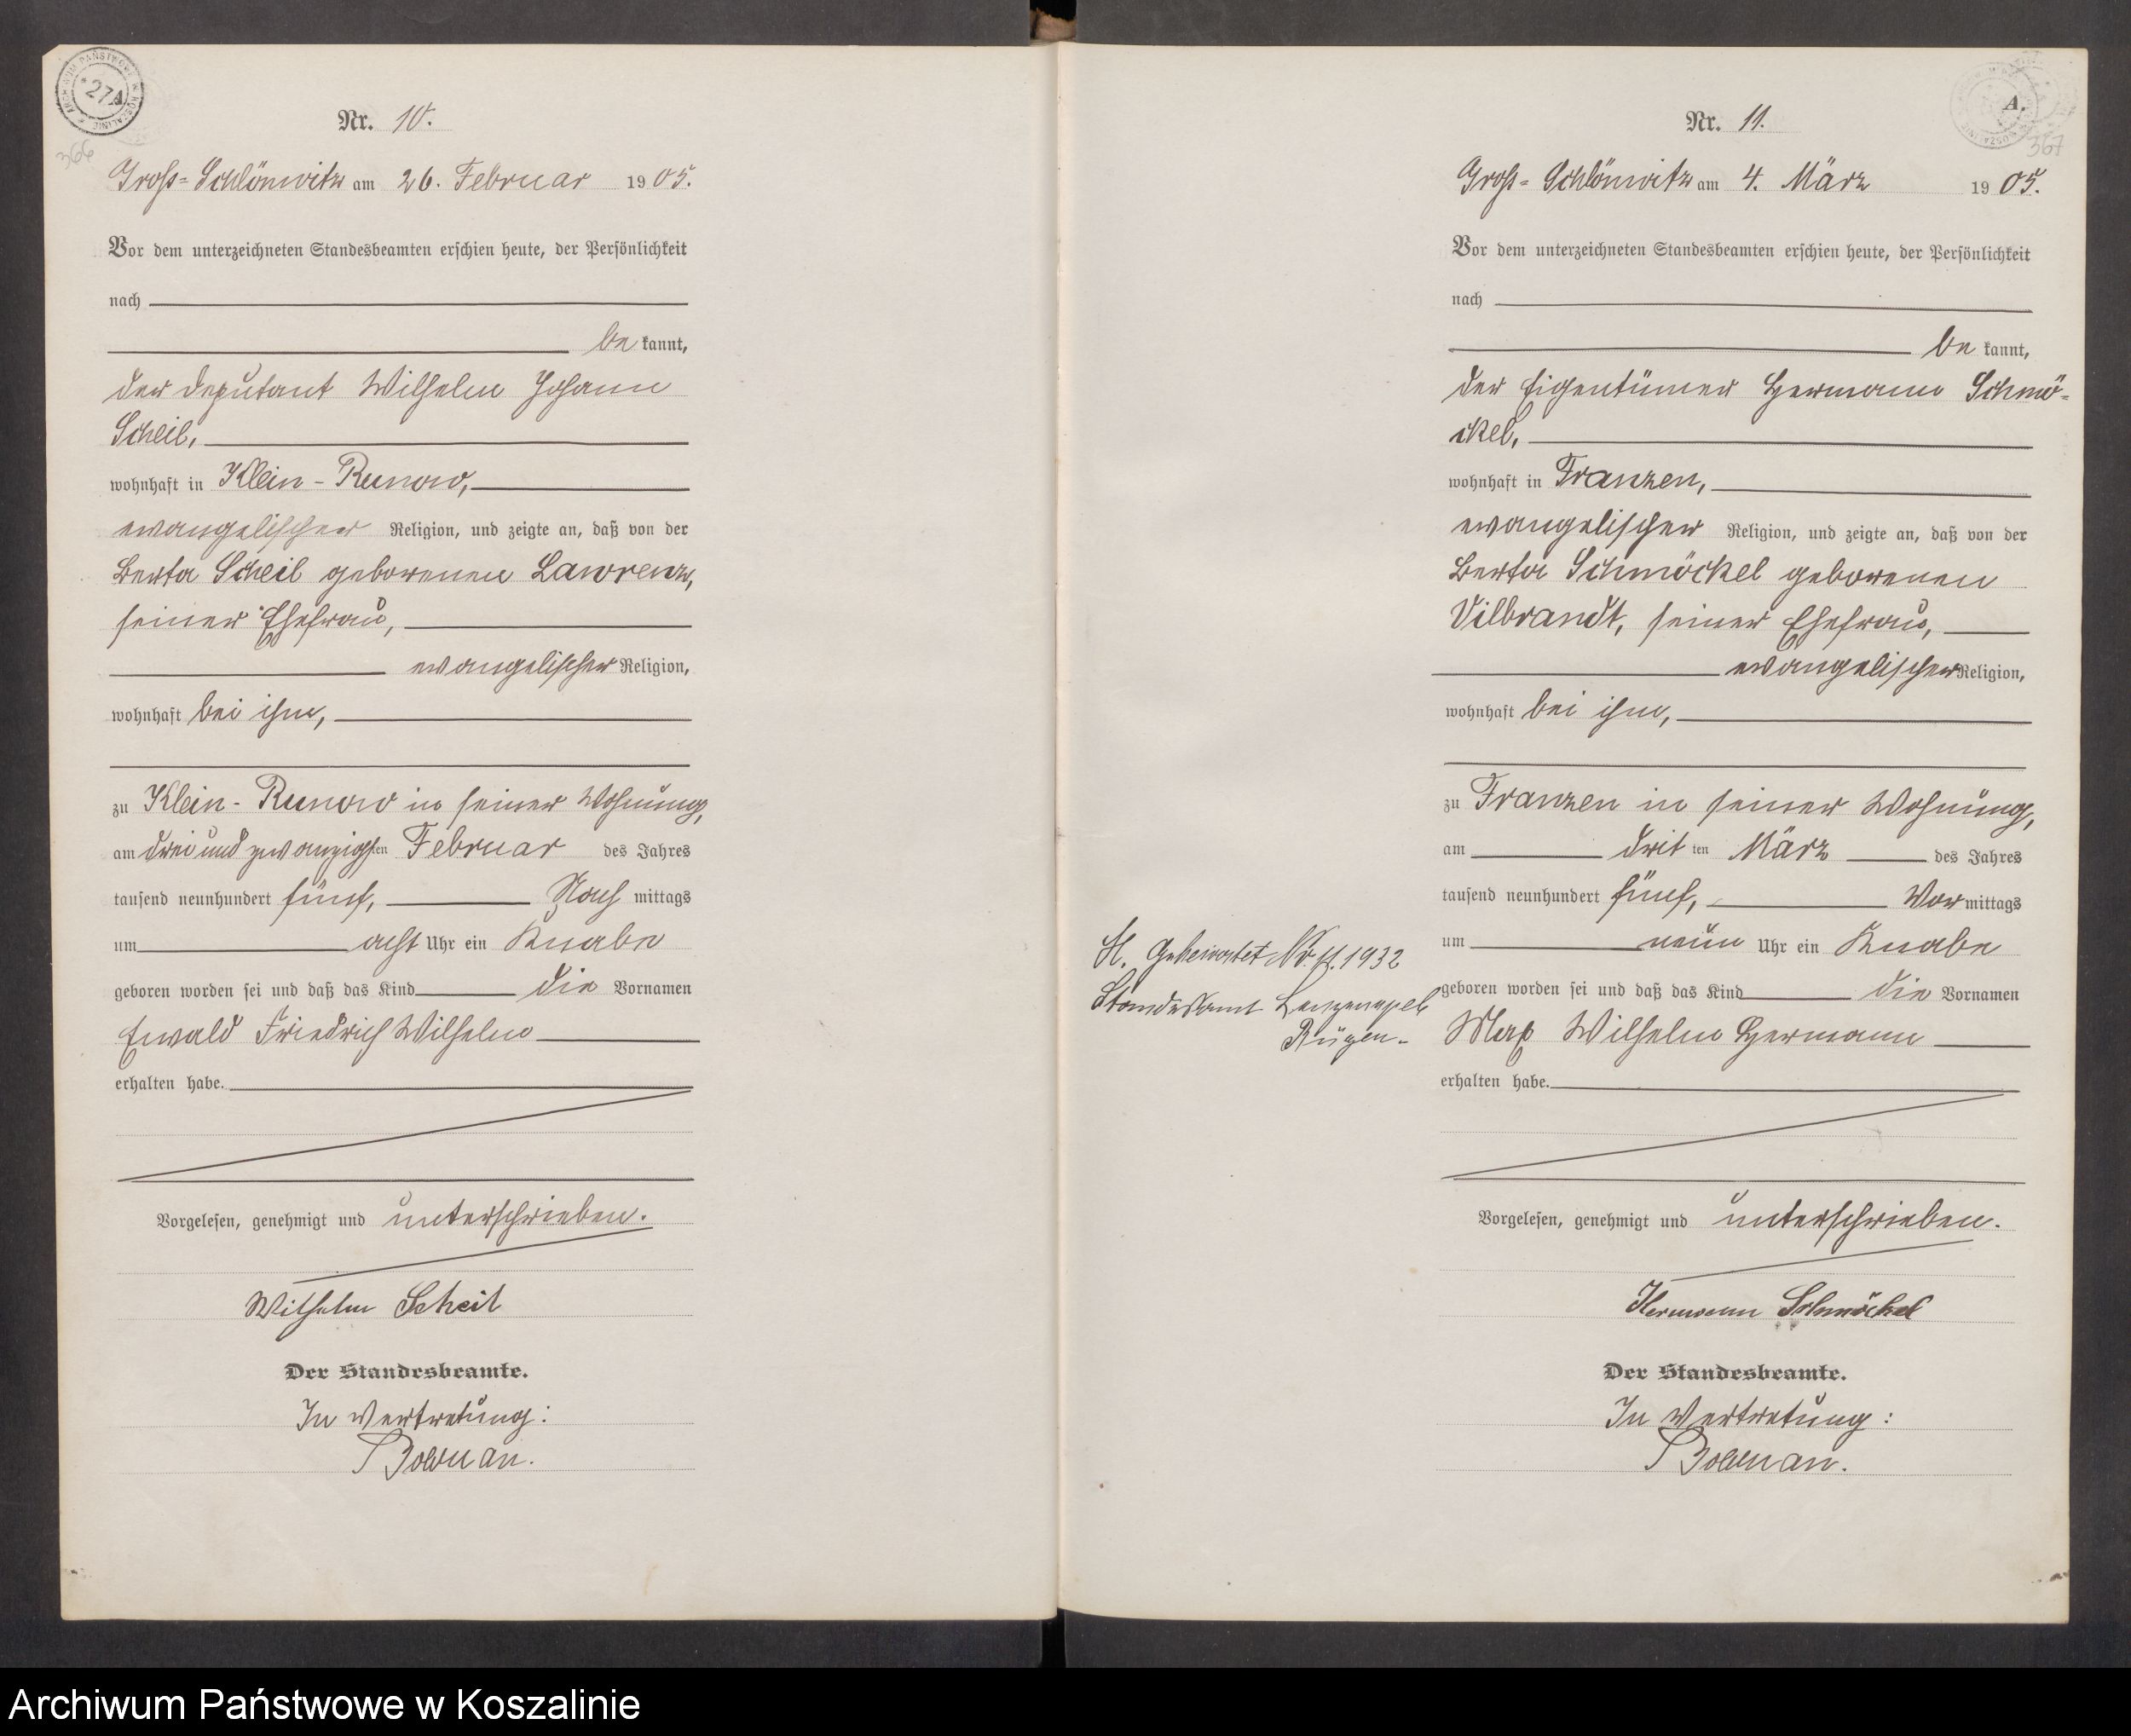 ARCHIWUM PAŃSTWOWE W KOSZALINIE
27A
366
Nr. 10.
Groß-Schlönwitz am 26. Februar 1905.
Vor dem unterzeichneten Standesbeamten erschien heute, der Persönlichkeit
nach
be kannt,
der Deputant Wilhelm Johann
Scheil,
wohnhaft in Klein-Runow,
evangelischer Religion, und zeigte an, daß von der
Berta Scheil geborenen Lawrenz,
seiner Ehefrau,
evangelischer Religion,
wohnhaft bei ihm,
zu Klein-Runow in seiner Wohnung,
am dreiundzwanzigsten Februar des Jahres
tausend neunhundert fünf, Nach mittags
um acht Uhr ein Knabe
geboren worden sei und daß das Kind die Vornamen
Ewald Friedrich Wilhelm
erhalten habe.
Vorgelesen, genehmigt und unterschrieben.
Wilhelm Scheil
Der Standesbeamte.
In Vertretung:
A.
367
Nr. 11.
Groß-Schlönwitz am 4. März 1905.
Vor dem unterzeichneten Standesbeamten erschien heute, der Persönlichkeit
nach
be kannt,
der Eigentümer Hermann Schmö-
ckel,
wohnhaft in Franzen,
evangelischer Religion, und zeigte an, daß von der
Berta Schmöckel geborenen
Vilbrandt, seiner Ehefrau,
evangelischer Religion,
wohnhaft bei ihm,
zu Franzen in seiner Wohnung,
am drit ten März des Jahres
tausend neunhundert fünf, Vor mittags
um neun Uhr ein Knabe
geboren worden sei und daß das Kind die Vornamen
Max Wilhelm Hermann
erhalten habe.
Vorgelesen, genehmigt und unterschrieben.
Hermann Schmöckel
Der Standesbeamte.
In Vertretung:
Geheiratet Nr. 11. 1932
Standesamt
Rügen
Archiwum Państwowe w Koszalinie